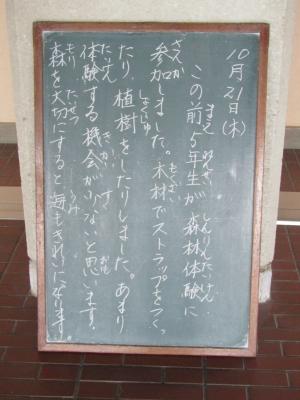 10月21日(木)
この前5年生が森林体験に
参加しました。木材でストラップをつくっ
たり、植樹をしたりしました。あまり
体験する機会が少ないと思います。
森を大切にすると海もきれいになります。
まえ
ねんせい
しんりんたいけん
さんか
もくざい
しょくじゅ
たいけん
きかい
すく
おも
もり
たいせつ
うみ